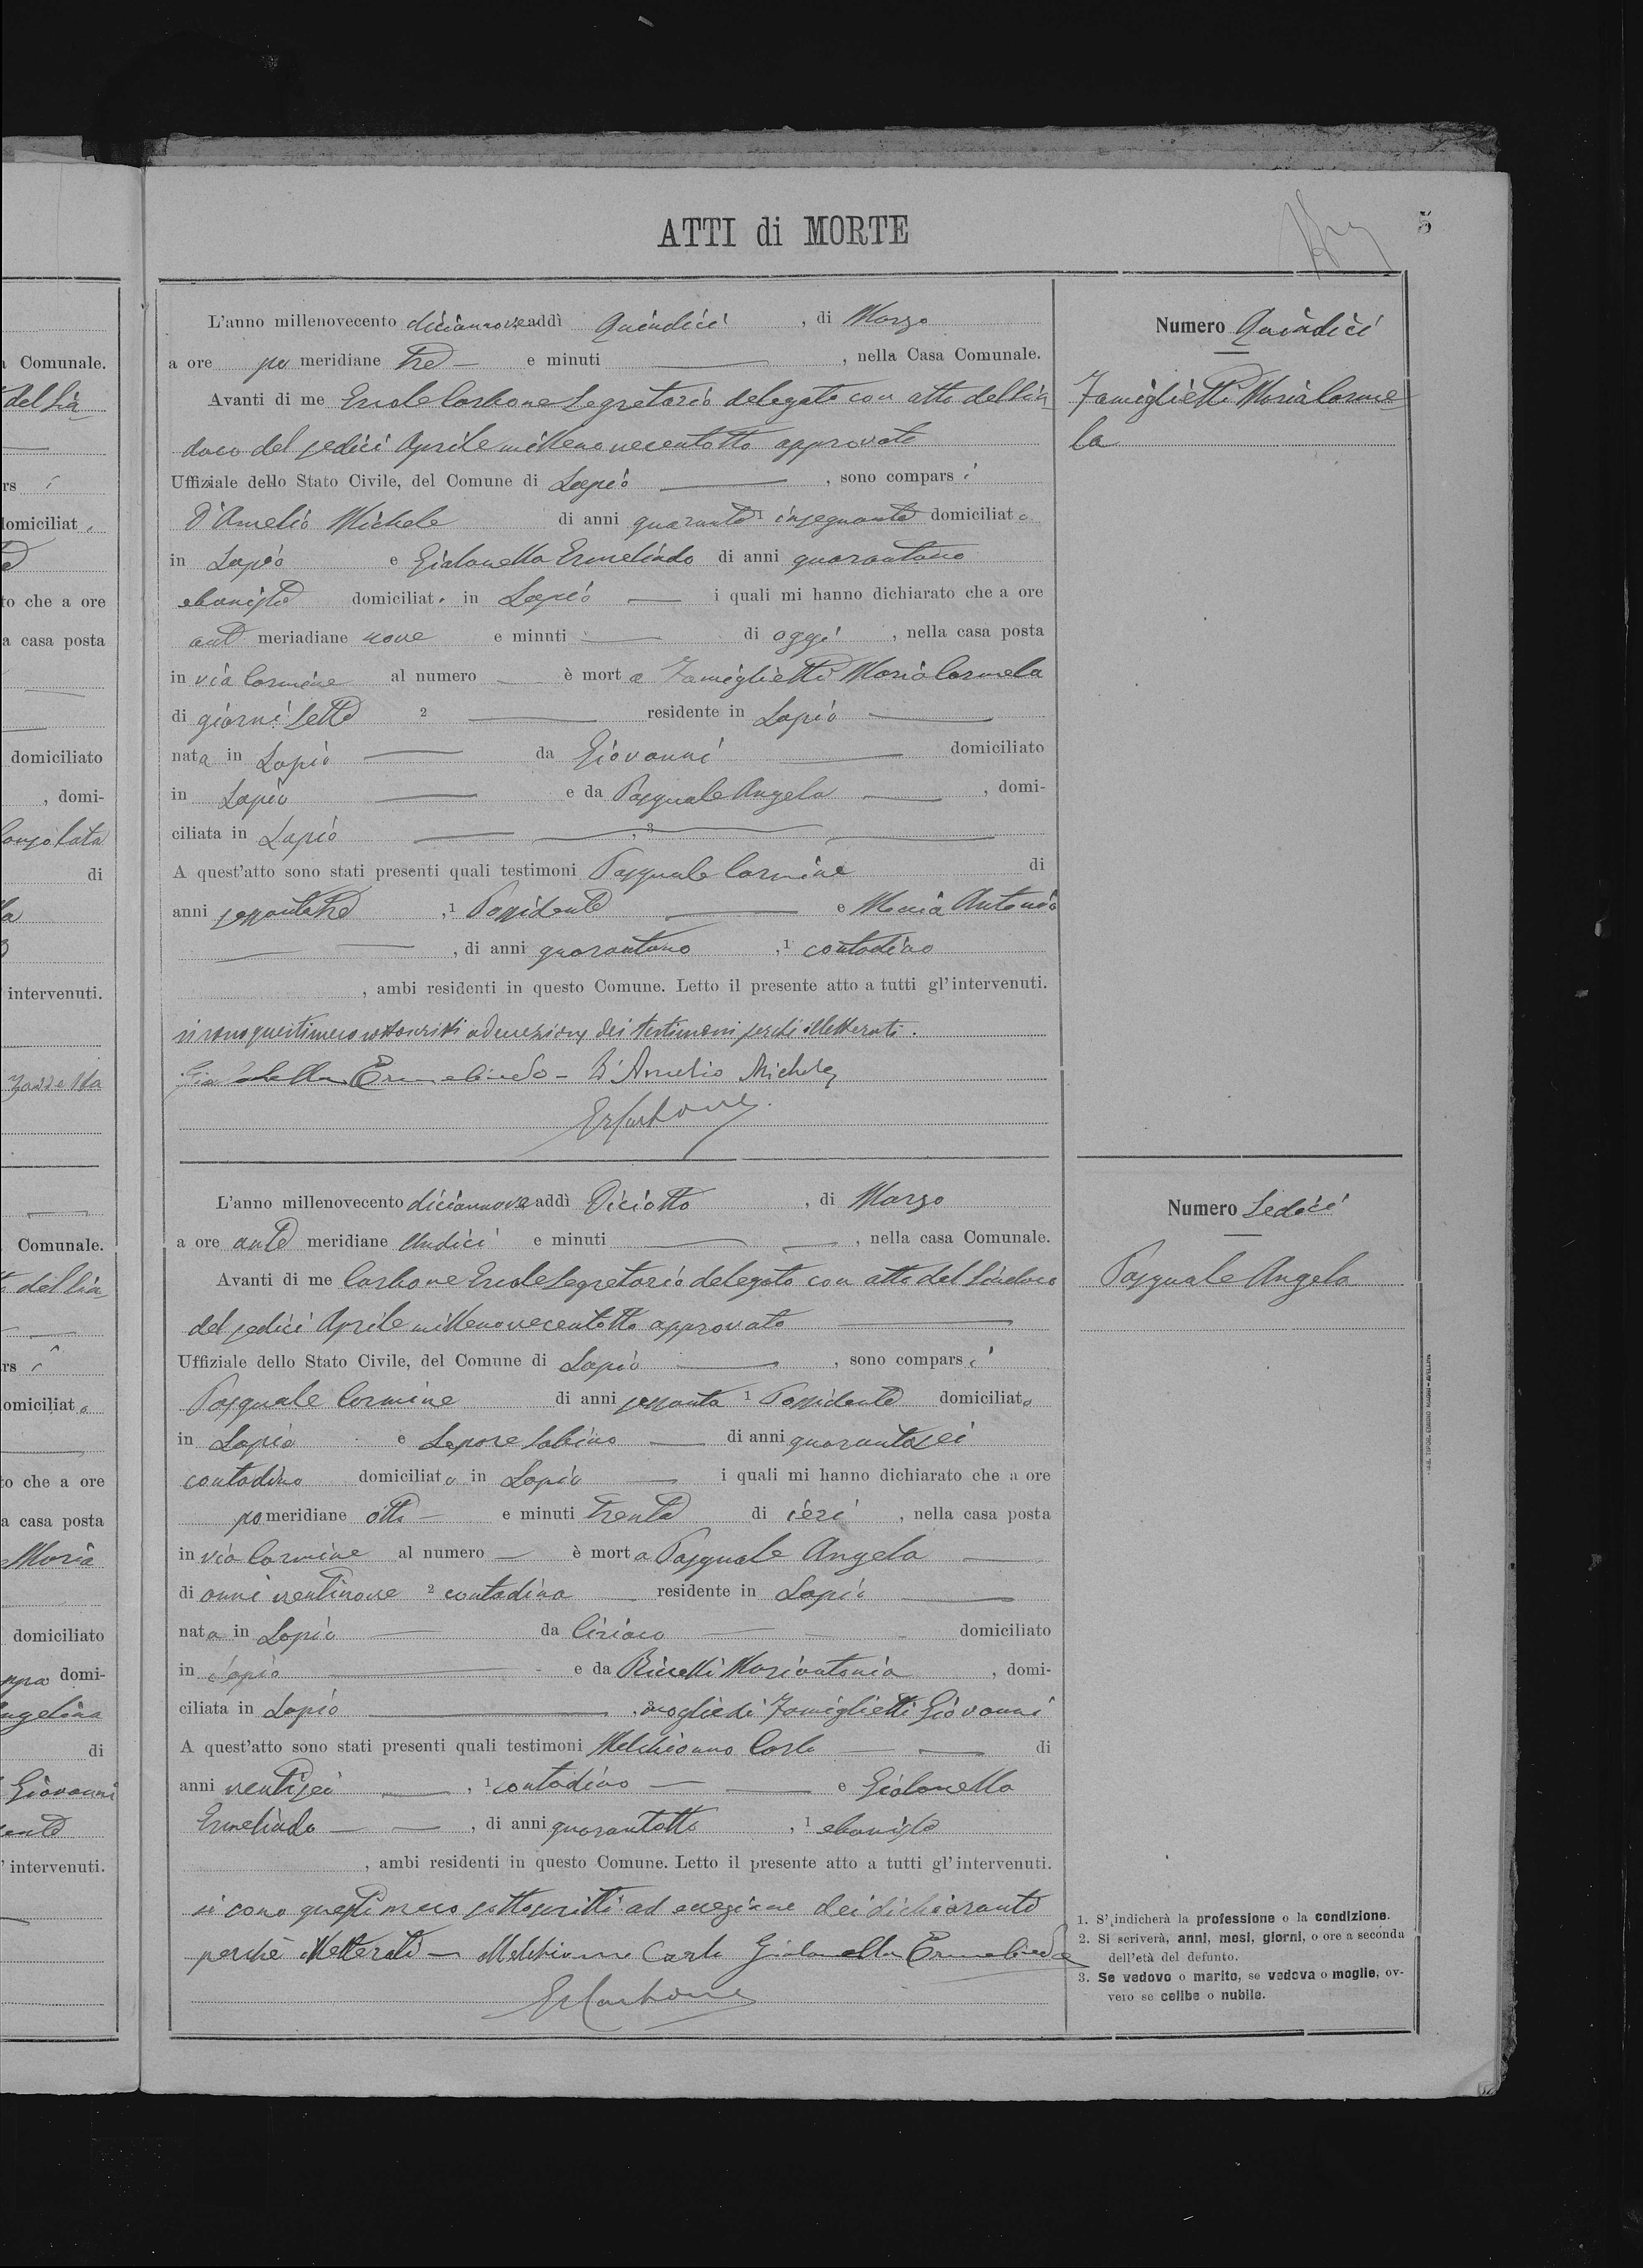 Comunale.
del Sin
rs i
domiciliat
to che a ore
a casa posta
domiciliato
, domi-
di
intervenuti.
Comunale.
del Sin
rs i
omiciliat o
to che a ore
a casa posta
Maria
domiciliato
domi-
Angelina
di
Giovanni
intervenuti.
5
ATTI di MORTE
L'anno millenovecento diciannove addì Quindici , di Marzo
a ore po meridiane tre e minuti , nella Casa Comunale.
Avanti di me Ercole Carbone Segretario delegato con atto del Sin
daco del sedici Aprile millenovecentotto approvato
Uffiziale dello Stato Civile, del Comune di Lapio , sono compars i
D'Amelio Michele di anni quaranta 1 insegnante domiciliato
in Lapio e Gialanella Ermelindo di anni quarantuno
ebanista domiciliat o in Lapio i quali mi hanno dichiarato che a ore
ant meriadiane nove e minuti di oggi , nella casa posta
in via Carmine al numero è mort a Famiglietti Maria Carmela
di giorni sette 2 residente in Lapio
nata in Lapio da Giovanni domiciliato
in Lapio e da Pasquale Angela , domi-
ciliata in Lapio , 3
A quest'atto sono stati presenti quali testimoni Pasquale Carmine di
anni sessantatre ,1 Possidente e Antonio
, di anni quarantuno ,1 contadino
, ambi residenti in questo Comune. Letto il presente atto a tutti gl'intervenuti.
si sono questi meco sottoscritti ad eccezione dei testimoni perchè illetterati.
Gialanella Ermelindo - D'Amelio Michele
ErCarbone
Numero Quindici
Famiglietti Maria Carme
la
L'anno millenovecento diciannove addì Diciotto , di Marzo
a ore ante meridiane Undici e minuti , nella casa Comunale.
Avanti di me Carbone Ercole Segretario delegato con atto del Sindaco
del sedici Aprile millenovecentotto approvato
Uffiziale dello Stato Civile, del Comune di Lapio , sono compars i
Pasquale Carmine di anni sessanta 1 Possidente domiciliato
in Lapio e Lepore Sabino di anni quarantasei
contadino domiciliato in Lapio i quali mi hanno dichiarato che a ore
po meridiane otto e minuti trenta di ieri , nella casa posta
in via Carmine al numero è mort a Pasquale Angela
di anni ventinove 2 contadina residente in Lapio
nata in Lapio da Ciriaco domiciliato
in Lapio e da Mariantonia , domi-
ciliata in Lapio , 3 moglie di Famiglietti Giovanni
A quest'atto sono stati presenti quali testimoni Melchionno Carlo di
anni ventisei , 1 contadino e Gialanella
Ermelindo , di anni quarantotto , 1 ebanista
, ambi residenti in questo Comune. Letto il presente atto a tutti gl'intervenuti.
si sono questi meco sottoscritti ad eccezione dei dichiaranti
perchè illetterati - Melchionno Carlo Gialanella Ermelindo
ErCarbone
Numero Sedici
Pasquale Angela
1. S'indicherà la professione o la condizione.
2. Si scriverà, anni, mesi, giorni, o ore a seconda
dell'età del defunto.
3. Se vedovo o marito, se vedova o moglie, ov-
vero se celibe o nubile.